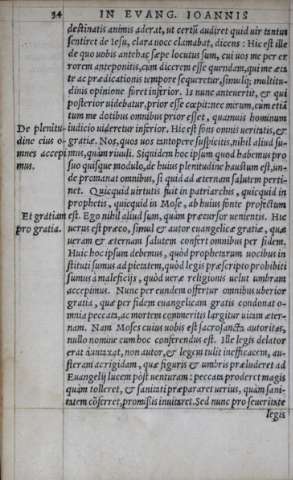 34 IN EVANG. IOANNIS
destinatis animis aderat, ut certū audiret quid uir tantus
sentiret de Iesu, clara uoce clamabat, dicens: Hic est ille
de quo uobis antehac sæpe locutus sum, cui uos me per er
rorem anteponitis, cum dicerem esse quendam, qui me æta
te ac prædicationis tempore sequeretur, simulq; multitu-
dinis opinione foret inferior. Is nunc anteuertit, & qui
posterior uidebatur, prior esse cœpit: nec mirum, cum etiā
tum me dotibus omnibus prior esset, quamuis hominum
De plenitu- iudicio uideretur inferior. Hic est fons omnis ueritatis, &
dine eius o- gratiæ. Nos, quos uos tantopere suspicitis, nihil aliud su-
mnes accepi mus, quàm riuuli. Siquidem hoc ipsum quod habemus pro
mus. suo quisque modulo, de huius plenitudine haustum est, un-
de promanat omnibus, si quid ad æternam salutem perti-
net. Quicquid uirtutis fuit in patriarchis, quicquid in
prophetis, quicquid in Mose, ab huius fonte profectum
Et gratiam est. Ego nihil aliud sum, quàm præcursor uenientis. Hic
pro gratia. uerus est præco, simul & autor euangelicæ gratiæ, quæ
ueram & æternam salutem confert omnibus per fidem.
Huic hoc ipsum debemus, quòd prophetarum uocibus in
stituti sumus ad pietatem, quòd legis præscripto prohibiti
sumus à maleficijs, quòd ueræ religionis uelut umbram
accepimus. Nunc per eundem offertur omnibus uberior
gratia, quæ per fidem euangelicam gratis condonat o-
mnia peccata, ac mortem commeritis largitur uitam æter-
nam. Nam Moses cuius uobis est sacrosancta autoritas,
nullo nomine cum hoc conferendus est. Ille legis delator
erat duntaxat, non autor, & legem tulit inefficacem, au-
steram ac rigidam, quæ figuris & umbris præluderet ad
Euangelij lucem pòst uenturam: peccata proderet magis
quàm tolleret, & sanitati præpararet uerius, quàm sani-
tatem cōferret, promissis inuitaret. Sed nunc pro seueritate
legis